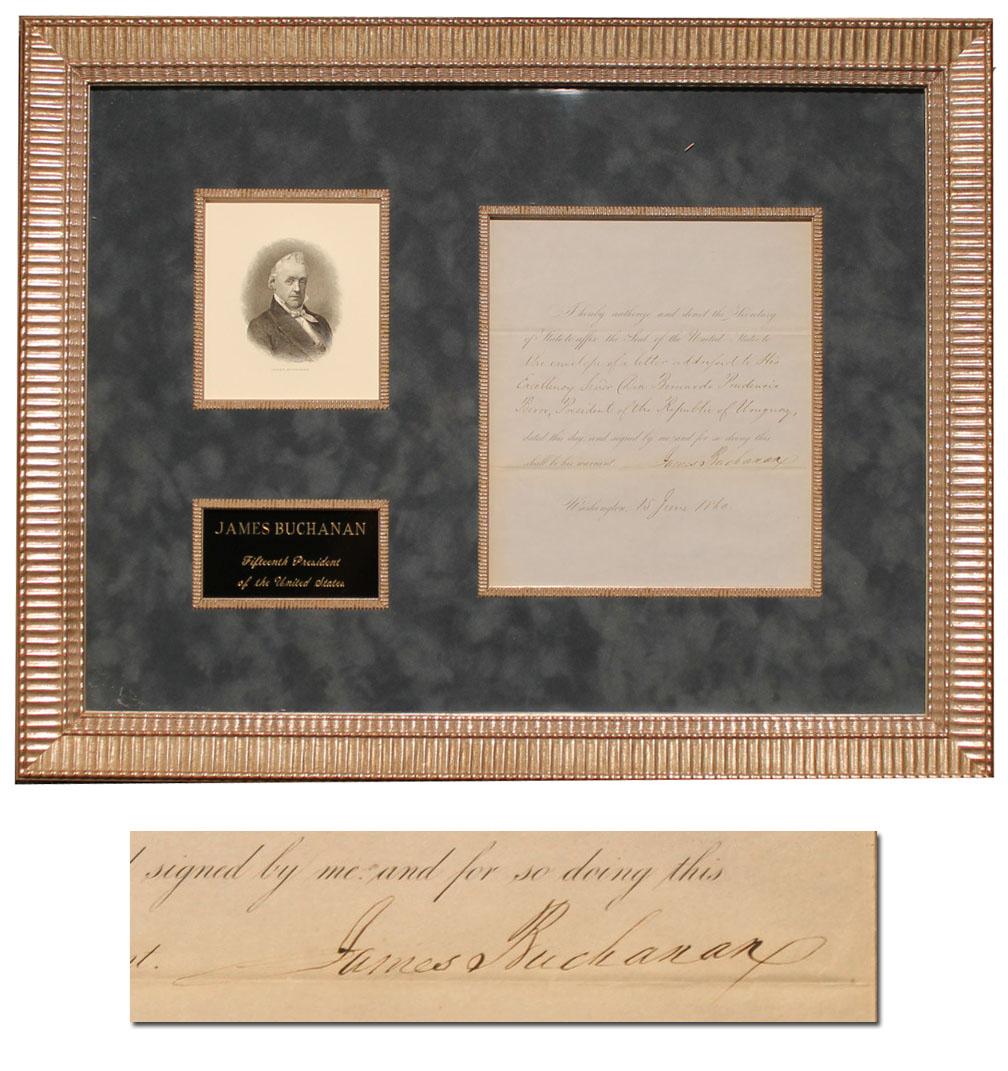 JAMES BUCHANAN
JAMES BUCHANAN
Fifteenth President
of the United States
I hereby authorize and direct the Secretary
of State to affix the Seal of the United States to
the envelope of a letter addressed to His
Excellency Señor Don Bernardo Prudencio
Berro, President of the Republic of Uruguay,
dated this day, and signed by me: and for so doing this
shall be his warrant. James Buchanan
Washington, 15 June 1860.
signed by me: and for so doing this
t. James Buchanan